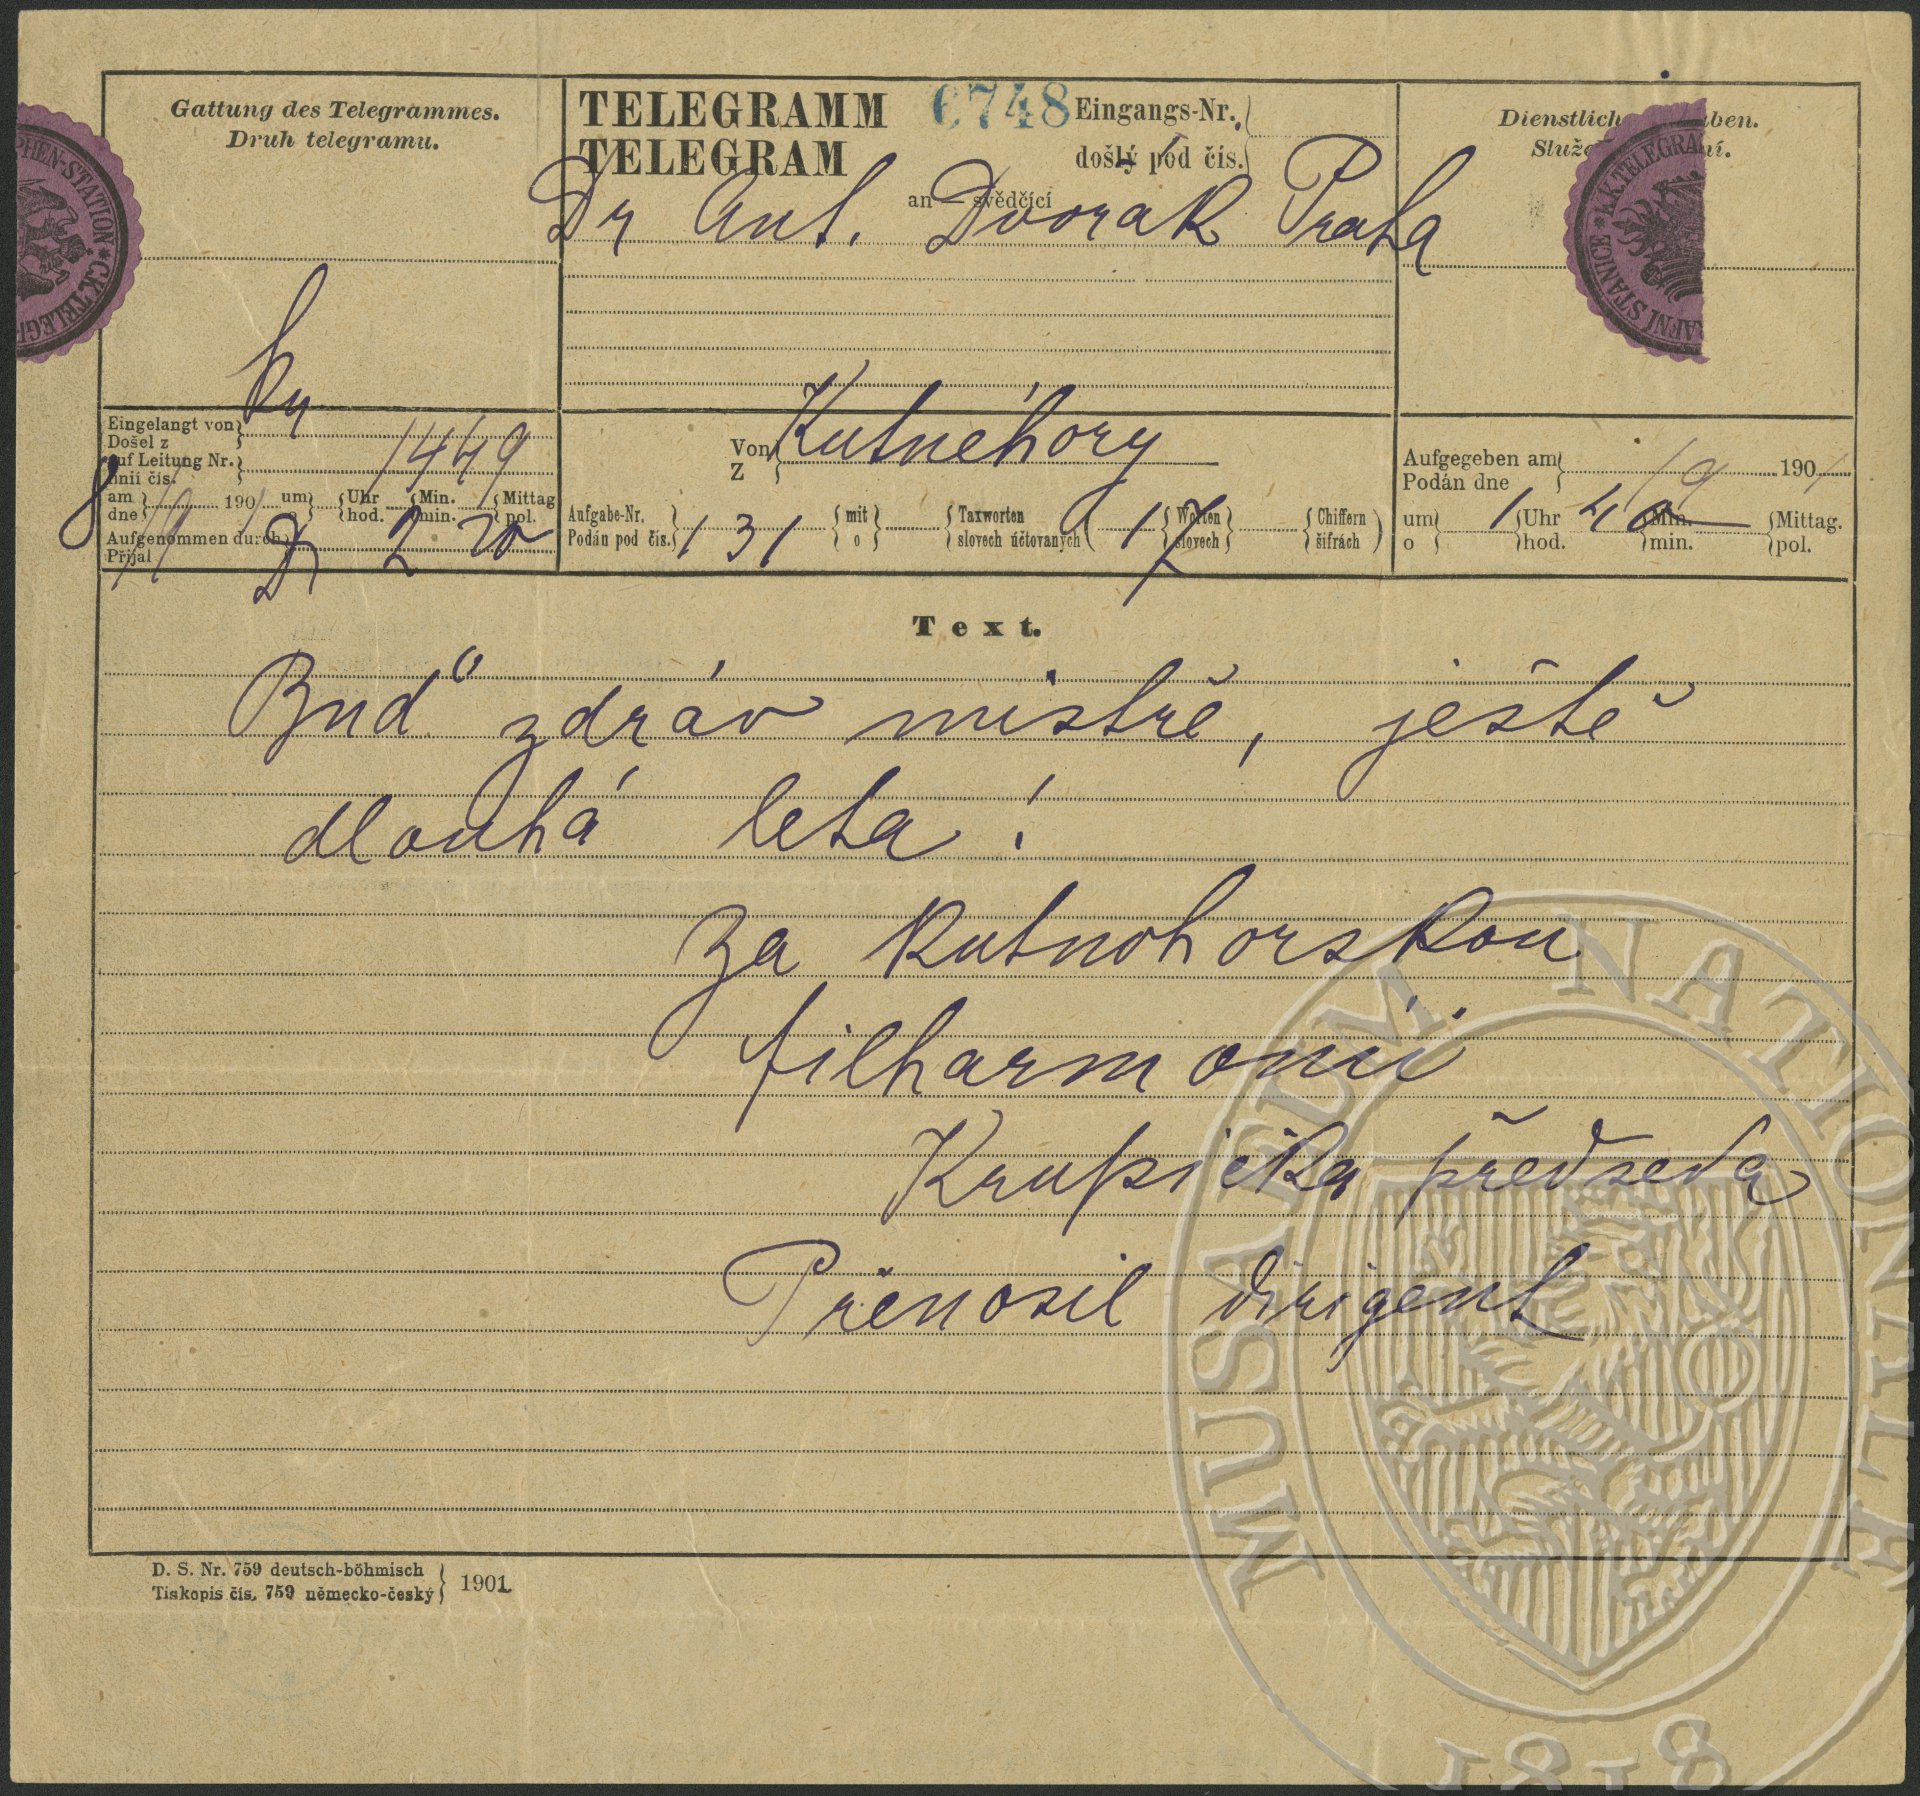 Gattung des Telegrammes.
Druh telegramu.
TELEGRAMM 6748 Eingangs-Nr.
TELEGRAM došlý pod čís.
an — svědčící
Dr Ant. Dvorak Praha
Dienstlich ben.
Služe ní.
PHEN-STATION * C.K. TELEGR
* K.K. TELEGRA
RAFNÍ STANICE *
Eingelangt von
Došel z
auf Leitung Nr. 1449
linii čís.
am 190 um Uhr Min. Mittag
dne o hod. min. pol.
Aufgenommen durch 2 20
Přijal
Von Kutnéhory
Z
Aufgabe-Nr. 131 mit Taxworten 17 Worten Chiffern
Podán pod čís. o slovech účtovaných slovech šifrách
Aufgegeben am 19 1901
Podán dne
um 1 Uhr 40 Min. Mittag.
o hod. min. pol.
Text.
Buď zdráv mistře, ještě
dlouhá leta!
Za kutnohorskou
filharmonii
Krupička předseda
Přenosil dirigent
D. S. Nr. 759 deutsch-böhmisch
Tiskopis čís. 759 německo-český 1901.
MUSAEUM NATIONALE
1818